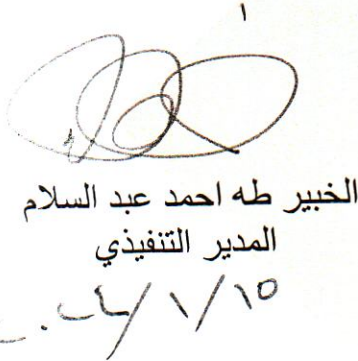 الخبير طه احمد عبد السلام
المدير التنفيذي
١٥/ ١ /